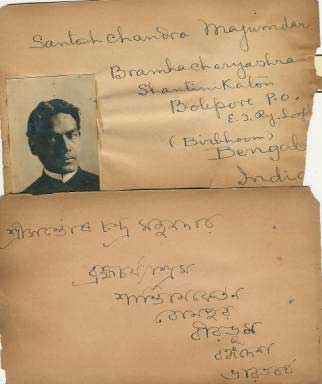 Santosh Chandra Majumdar
Bramhacharyashra
Shantiniketon
Bolepore P.O.
E.I. Ry. Loop
(Birbhoom)
Bengal
India
শ্রীসন্তোষ চন্দ্র মজুমদার
ব্রহ্মচর্য্যাশ্রম
শান্তিনিকেতন
বোলপুর
বীরভূম
বঙ্গদেশ
ভারতবর্ষ